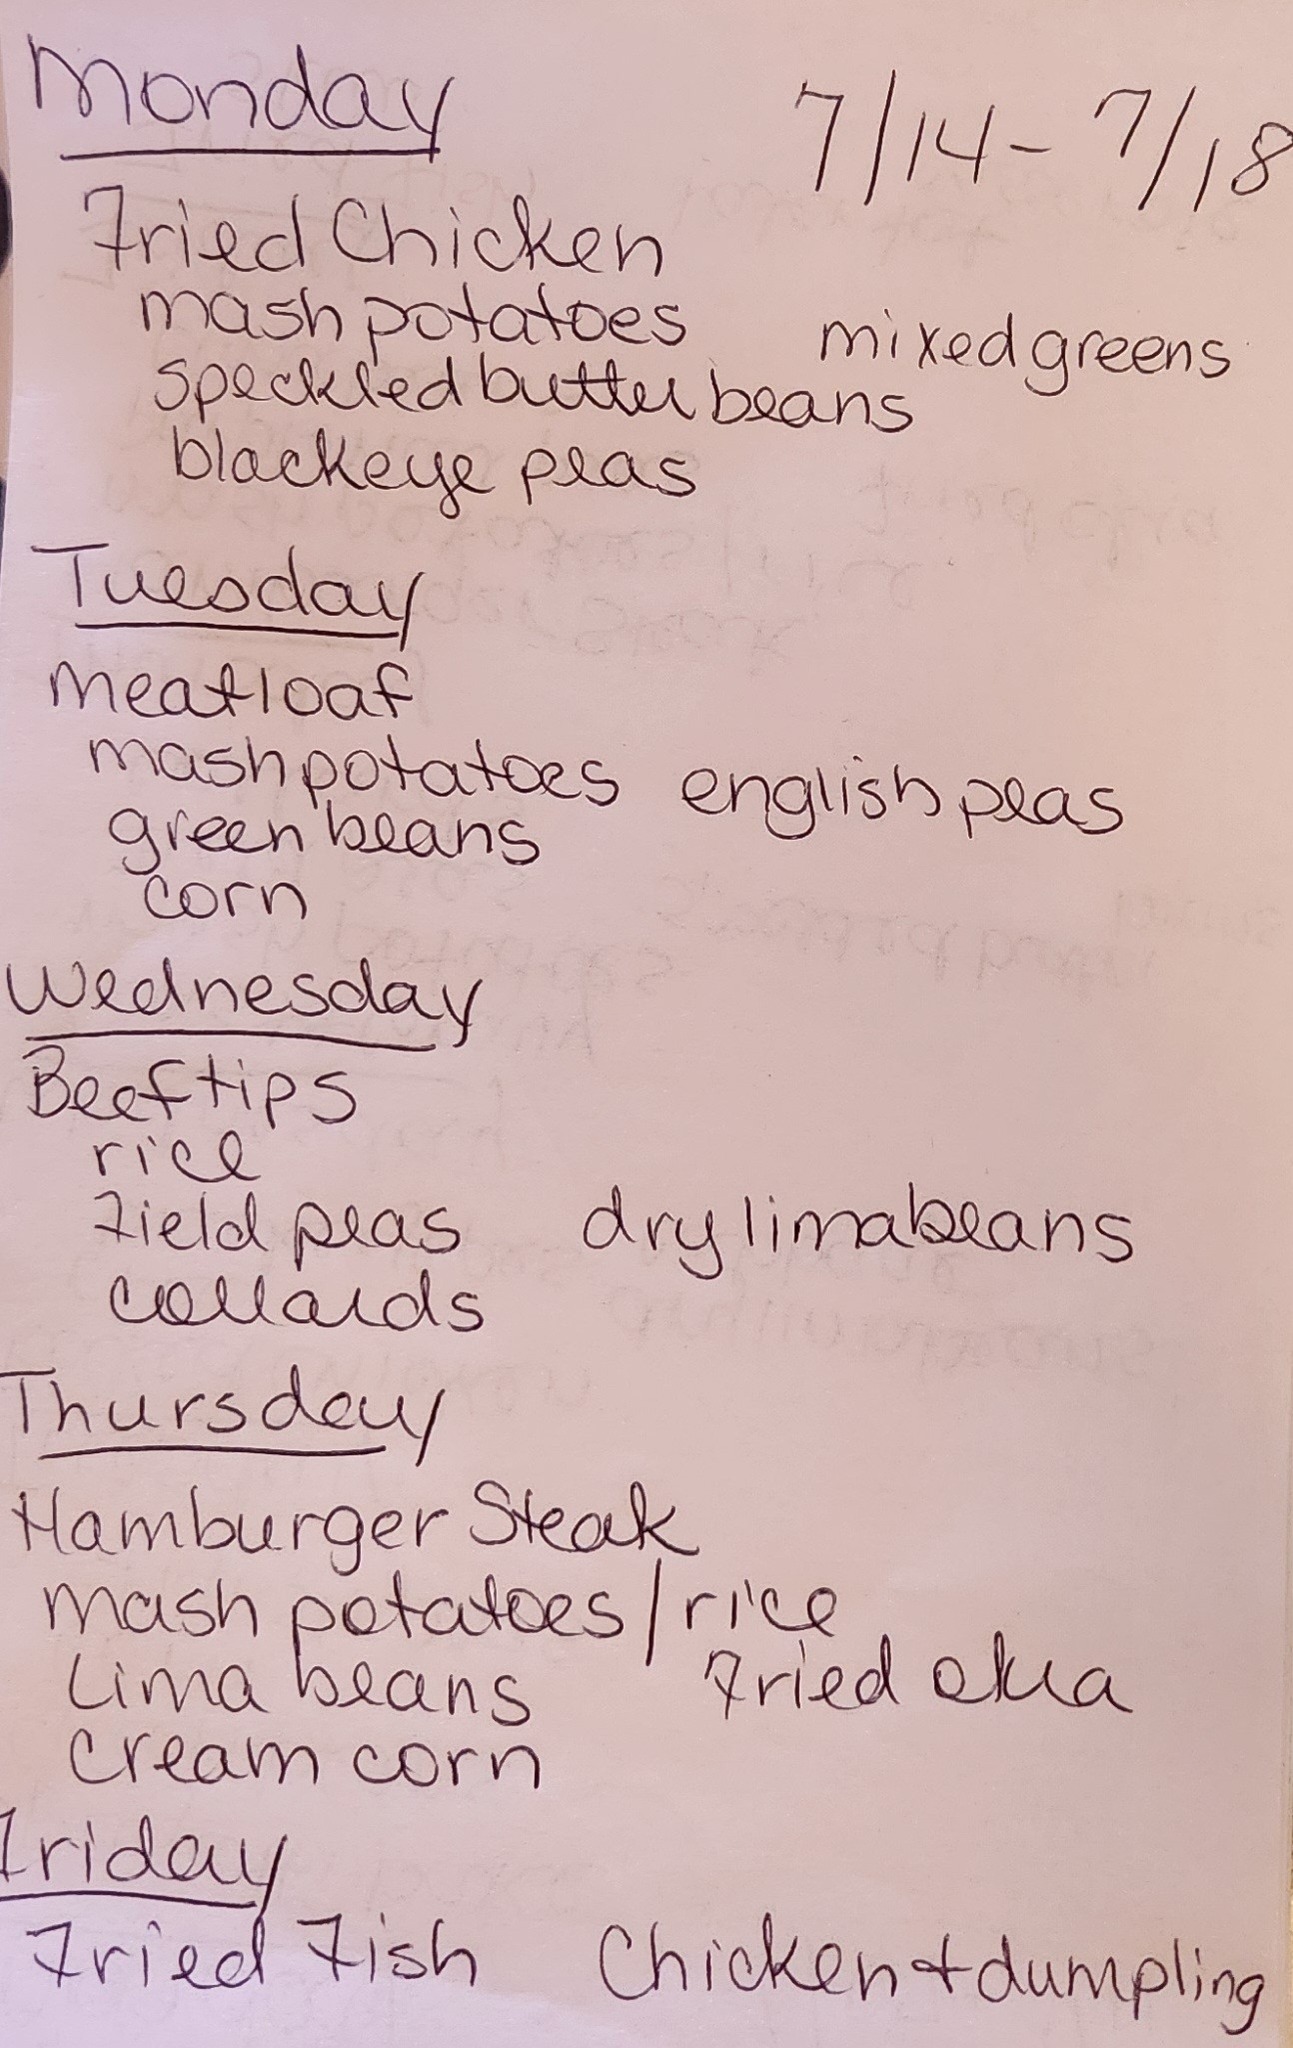 Monday
7/14 - 7/18
Fried Chicken
mash potatoes
mixed greens
speckled butter beans
blackeye peas
Tuesday
meatloaf
mash potatoes english peas
green beans
corn
Wednesday
Beef tips
rice
Field peas dry lima beans
collards
Thursday
Hamburger Steak
mash potatoes / rice
Lima beans Fried okra
cream corn
Friday
Fried Fish Chicken + dumpling